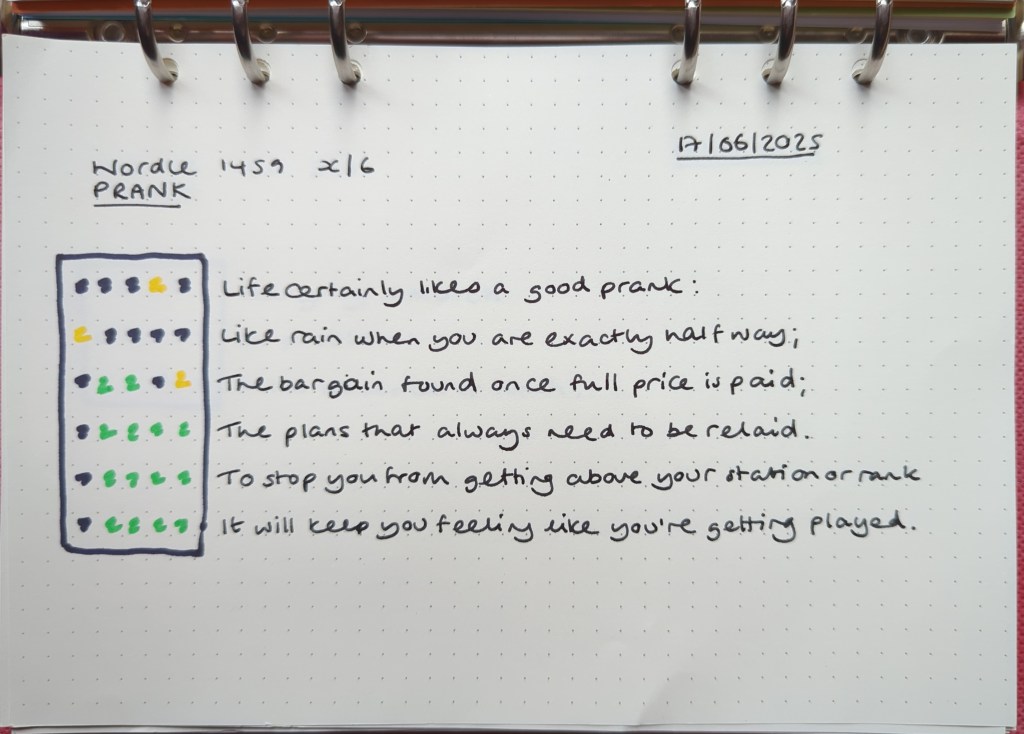 17/06/2025
Wordle 1459 X/6
PRANK
Life certainly likes a good prank:
Like rain when you are exactly half way;
The bargain found once full price is paid;
The plans that always need to be relaid.
To stop you from getting above your station or rank
It will keep you feeling like you're getting played.